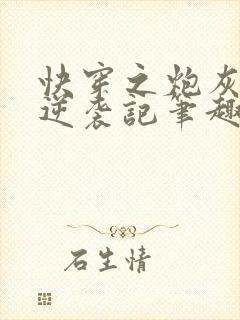 快穿之炮灰
逆袭记笔趣
石生情